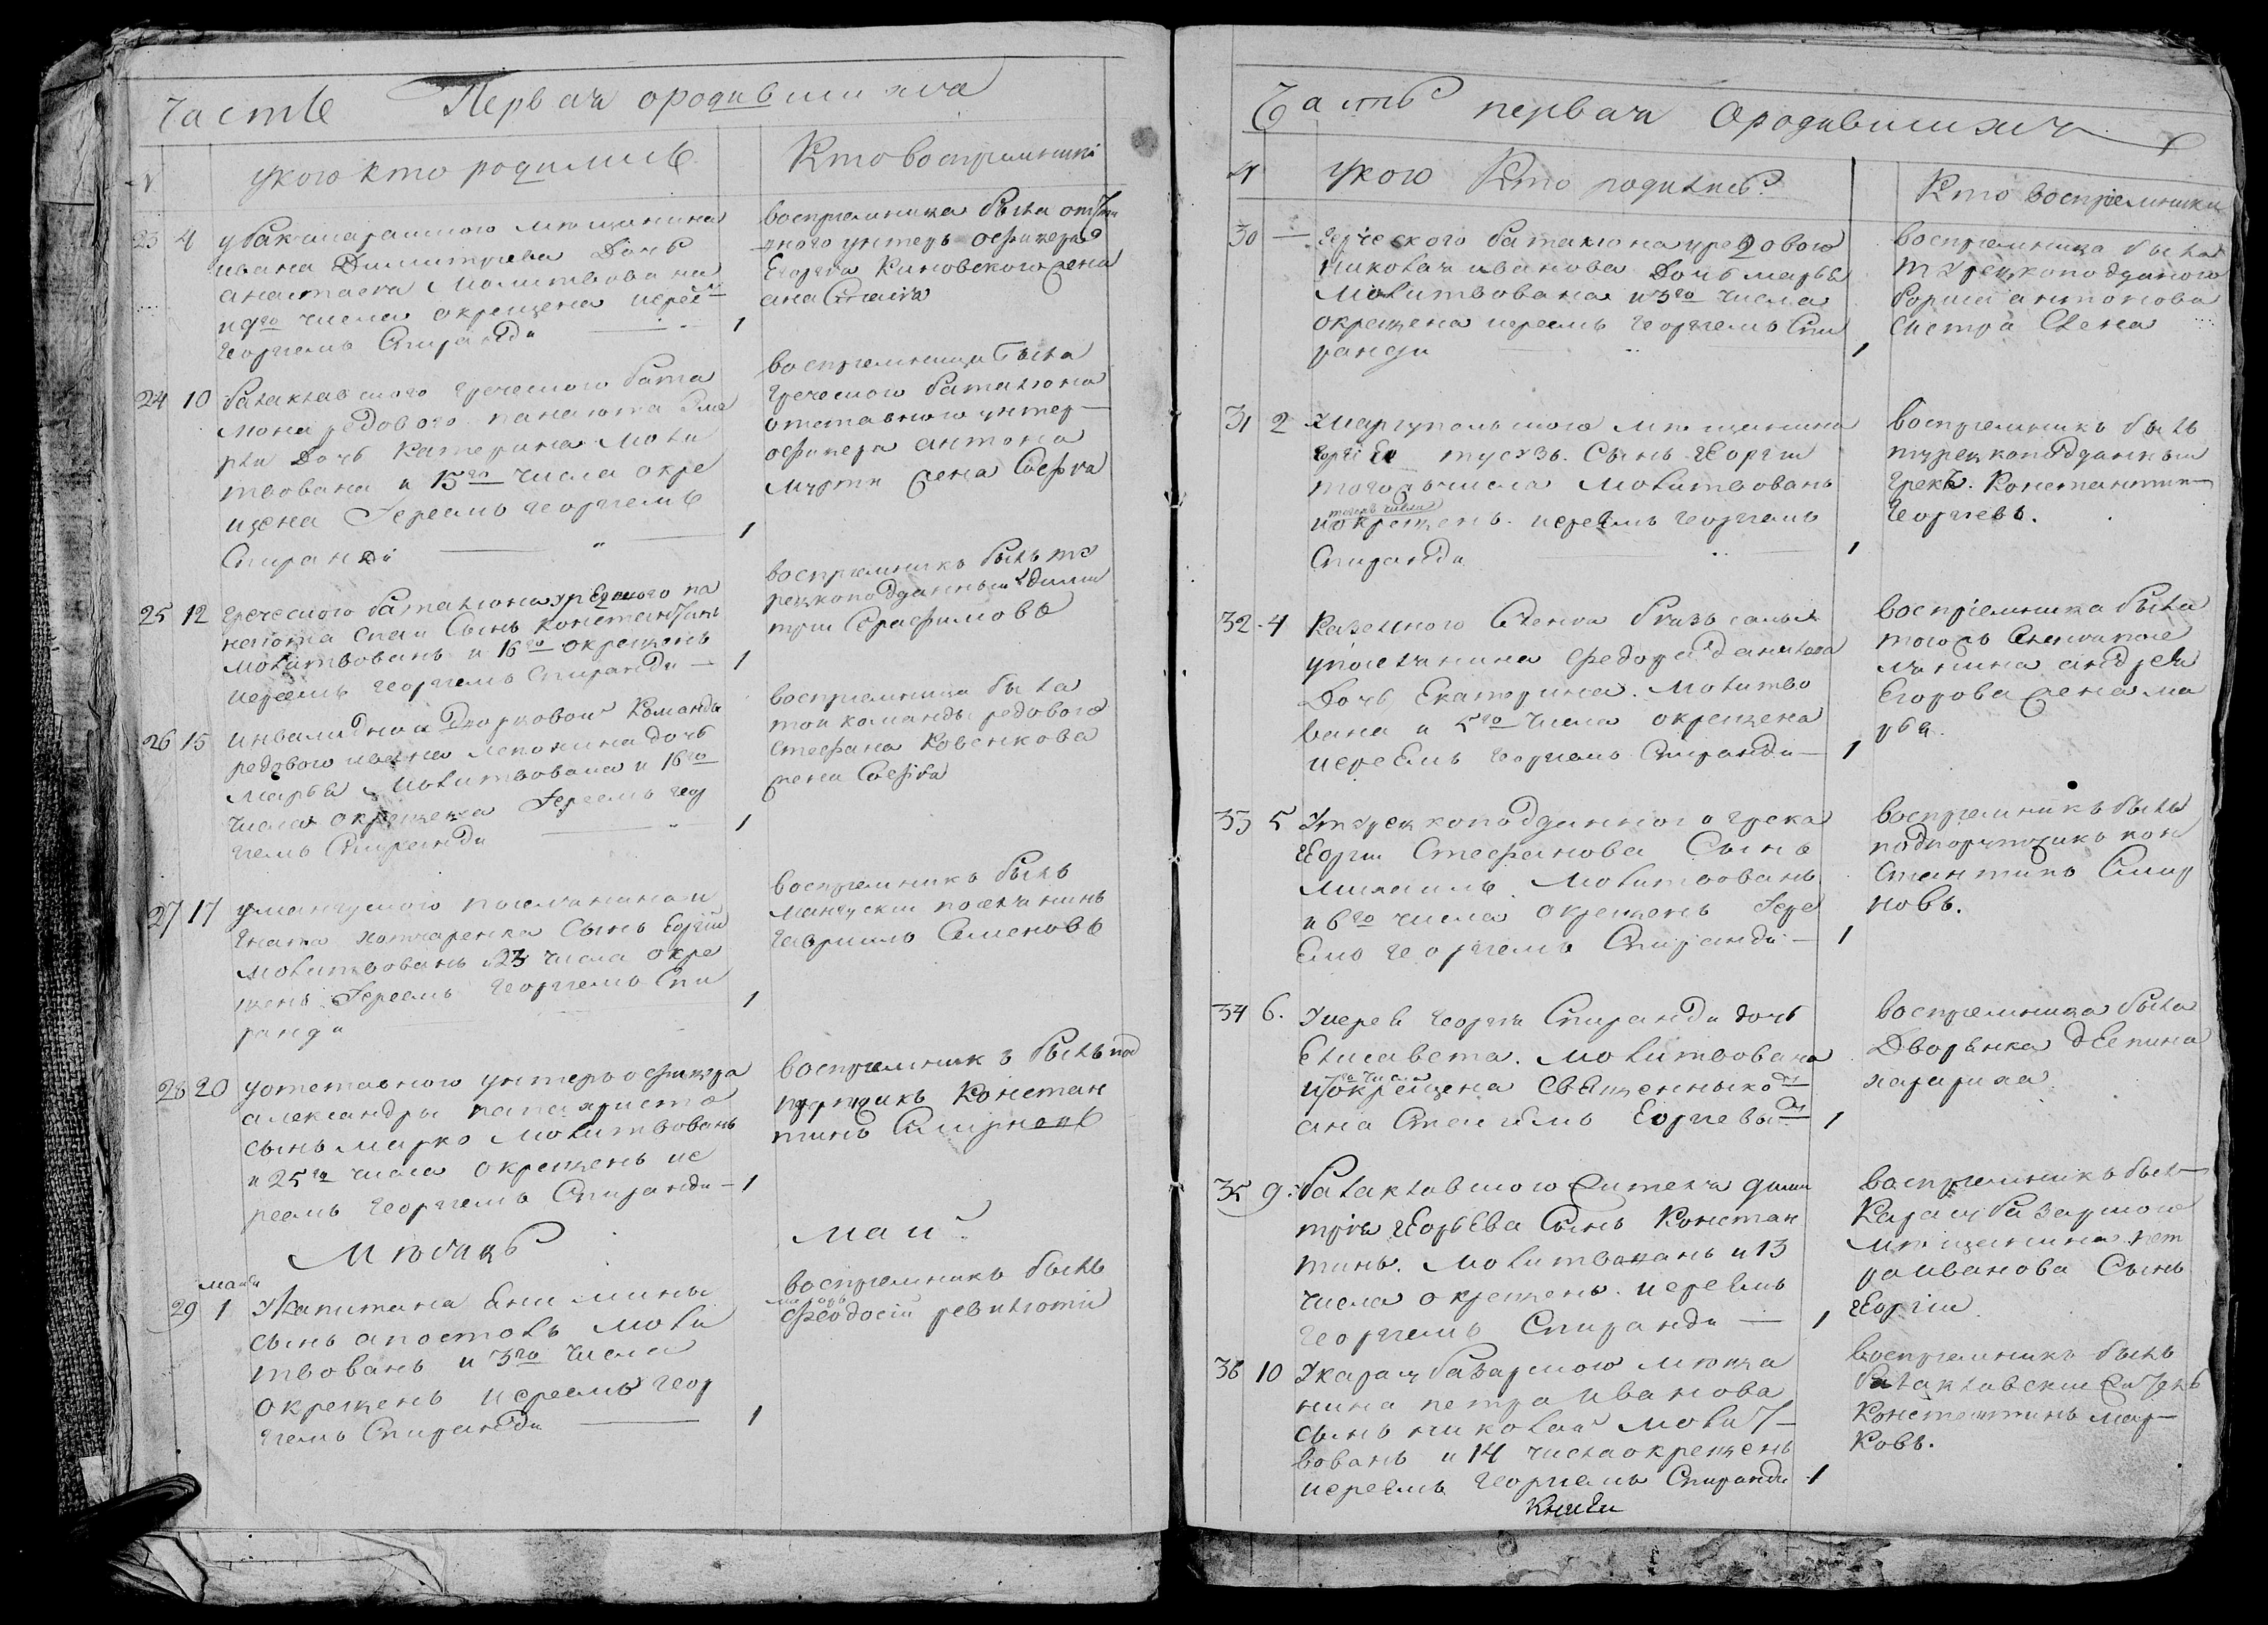 Часть Первая ородившихся
N
укого кто родились
Кто воспрiемники
23 4 у Бакчисарайского мещанина
ивана Димитриева Дочь
анастасiя молитвована
и 9го числа окрещена iерее
Георгiемъ Спиранди 1
воспрiемница была отста
вного унтеръ офицера
Егоргiя Кановского жена
анастасiя
24 10 балаклавского греческого бата
лiона редового панаiота
Дочь Катерина моли
твована и 15го числа окре
щена Iереемъ георгiемъ
Спиранди 1
воспрiемница была
Греческого баталiона
отставного унтер
офицера антона
мурти жена Софiя
25 12 Греческого баталiона редового па
наiота Спаи Сынъ константинъ
молитвованъ и 16го окрещенъ
iереемъ георгiемъ Спиранди 1
воспрiемникъ былъ ту
рецкоподданный дими
трiй Серафимовъ
26 15 инвалидной Дворцовой Команды
редового ивана Дочь
марья молитвована и 16го
числа окрещена Iереемъ геор
гiемъ Спиранди 1
воспрiемница была
той команды редового
Стефана Ковенкова
жена Софiя
27 17 у мангушского поселянина и
гната хотчаренка Сынъ Еоргiй
молитвованъ и 23 числа окре
щенъ Iереемъ Георгiемъ Спи
ранди 1
воспрiемникъ былъ
мангускiй поселянинъ
Гаврiилъ Семеновъ
28 20 у отставного унтеръ офицера
александры папахристо
сынъ марко молитвованъ
и 25го числа окрещенъ iе
реемъ георгiемъ Спиранди 1
воспрiемникъ былъ под
портчикъ Констан
тинъ Смирновъ
Мѣсяцъ май
маiя
29 1 У Капитана Ени мины
сынъ апостолъ моли
твованъ и 3го числа
окрещенъ iереемъ геор
гiемъ Спиранди 1
воспрiемникъ былъ
маiоръ
Феодосiй ревилiоти
Часть первая Ородившихся
N укого Кто родились
Кто воспрiемники
30 — Греческого баталiона редового
николая иванова Дочь марья
молитвована и 3го числа
окрещена iереемъ георгiемъ Спи
ранди 1
воспрiемница была
турецкоподданого
борiса антонова
систра Елена
31 2 У марiупольского мѣщанина
Сынъ Георгiй
того числа молитвованъ
тогожъ числа
и окрещенъ iереемъ георгiемъ
Спиранди 1
воспрiемникъ былъ
турецкоподданный
грекъ Константин
Георгiевъ.
32 4 Казенного Селенiя
поселянина Федора данилова
Дочь Екатерина. молитво
вана и 5го числа окрещена
iереемъ георгiемъ Спиранди 1
воспрiемника была
тогожъ Селенiя посе
лянина андрея
Егорова жена ма
рья.
33 5 У турецкоподданного грека
Георгiя Стефанова Сынъ
михаилъ молитвованъ
и 6го числа окрещенъ Iере
емъ георгiемъ Спиранди 1
воспрiемникъ былъ
подпортчикъ кон
стантинъ Смир
новъ.
34 6. У iерея георгiя Спиранди дочь
Елисавета. молитвована
числа
и окрещена священникомъ
Георгiевы 1
воспрiемница была
Дворянка деспина
35 9. балаклавского жителя дими
трiя георьева Сынъ Констан
тинъ. молитвованъ и 13
числа окрещенъ iереемъ
георгiемъ Спиранди 1
воспрiемникъ былъ
Карасубазарского
мѣщанина пет
ра иванова Сынъ
георгiй
36 10 У карасубазарского мѣща
нина петра иванова
сынъ николай молит
вованъ и 14 числа окрещенъ
iереемъ георгiемъ Спиранди 1
воспрiемникъ былъ
балаклавскiй житель
Константинъ мар
ковъ.